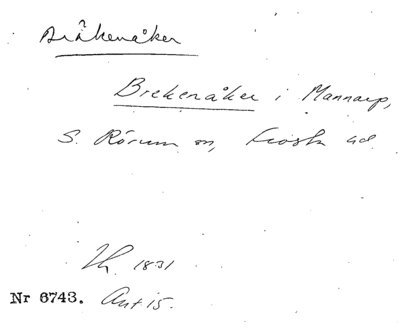 Bråkenåker
Brekenåker i Mannarp,
S. Rörum sn, Frosta hd.
Lh. 1831
Nr 6743. Ant 15.